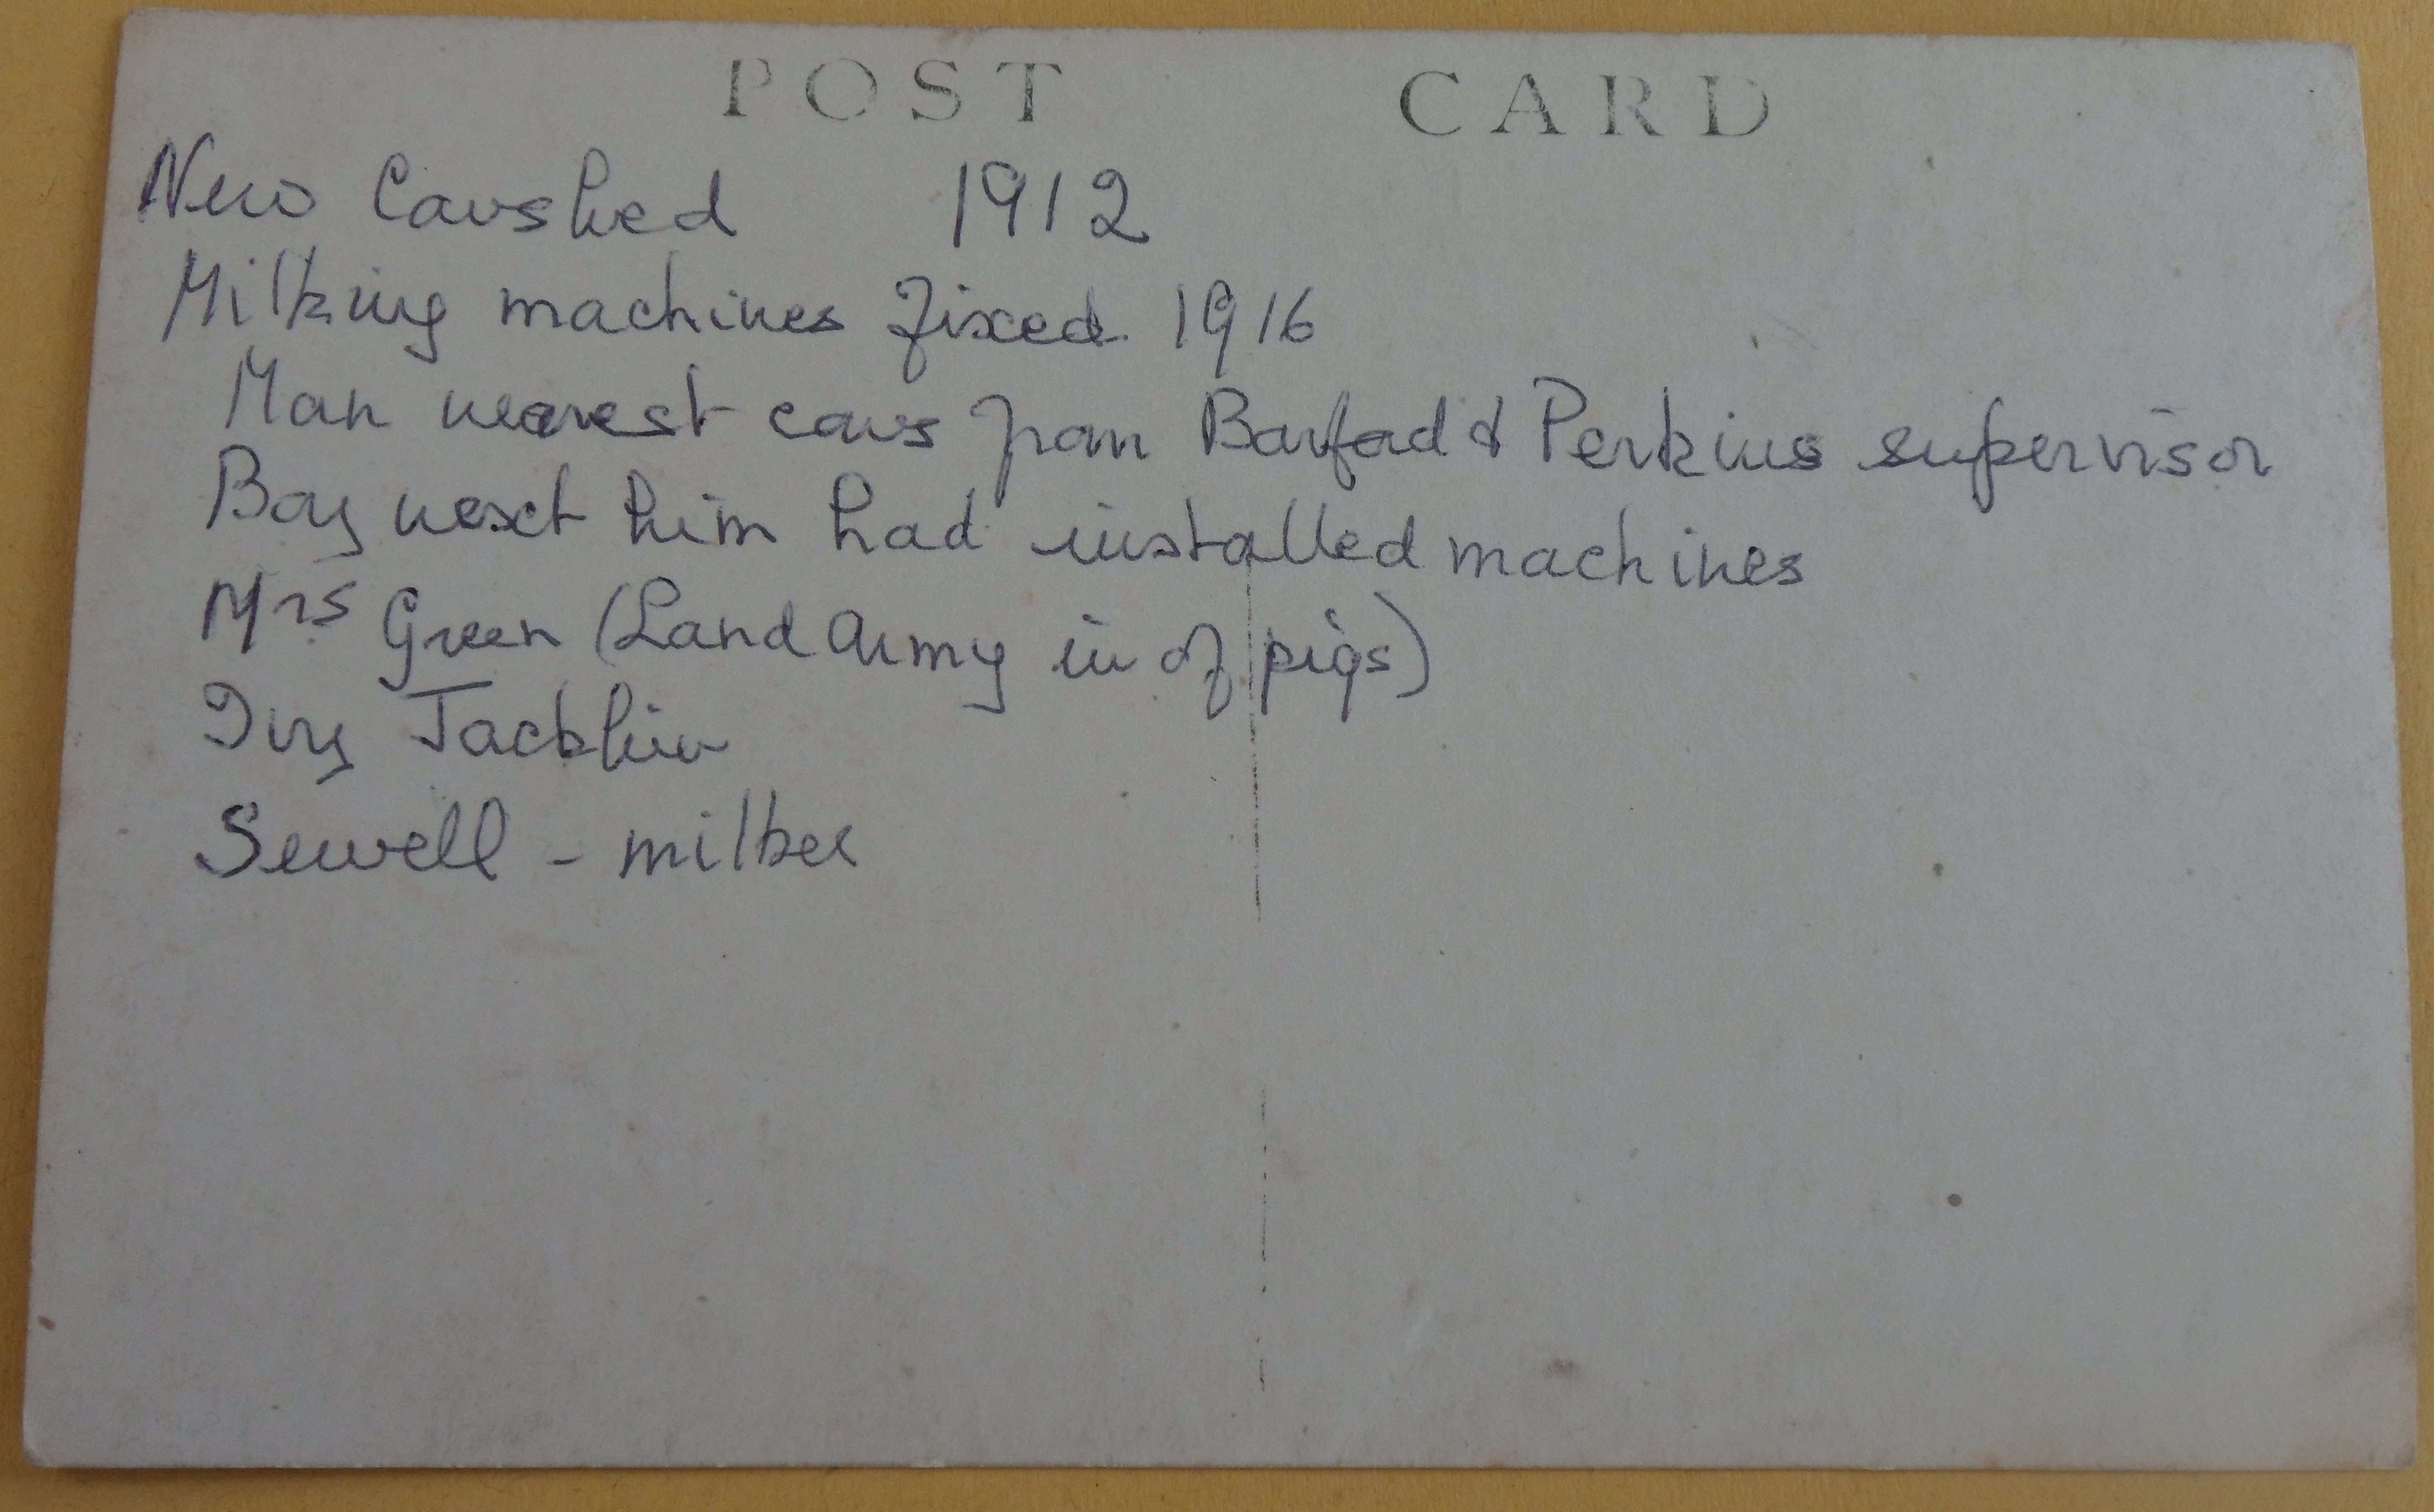 POST CARD
New Cowshed 1912
Milking machines fixed 1916
Man nearest cows from Barford & Perkins supervisor
Boy next him had installed machines
Mrs Green (Land Army in of pigs)
Ivy Jacklin
Sewell - milker